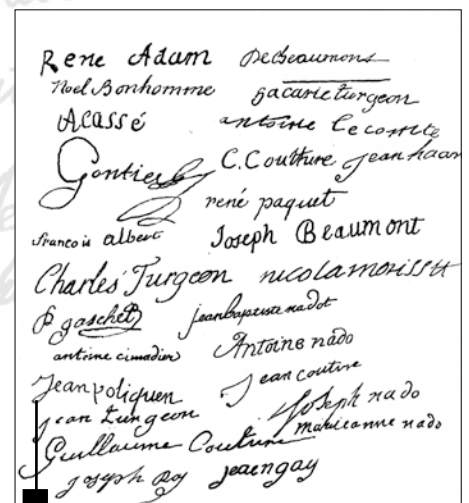 Rene Adam DeBeaumons
Noel Bonhomme Zacarie turgeon
Alassé antoine Lecomte
Gontier C. Coutture Jean haar
rené paquet
francois albert Joseph Beaumont
Charles Turgeon nicola morissett
P gaschet jeanbaptiste nadot
antoine cimadier Antoine nado
Jean poliquen Jean couture
jean turgeon Joseph nado
Guillaume Couture marieanne nado
Joseph Roy jeaengay